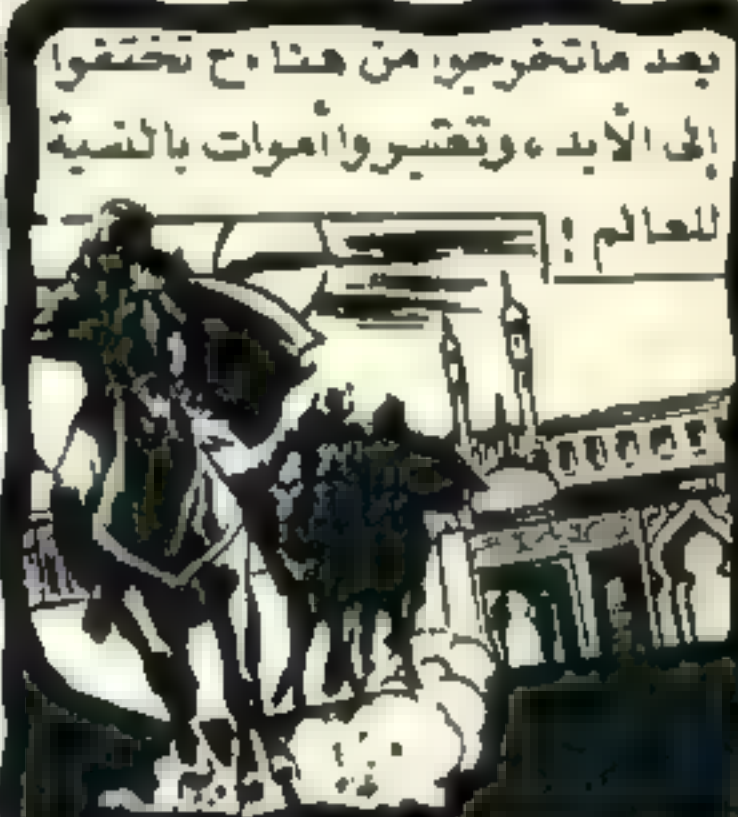 بعد ماتخرجوا من هنا، ح تختفوا
إلى الأبد، وتعتبروا أموات بالنسبة
للعالم !